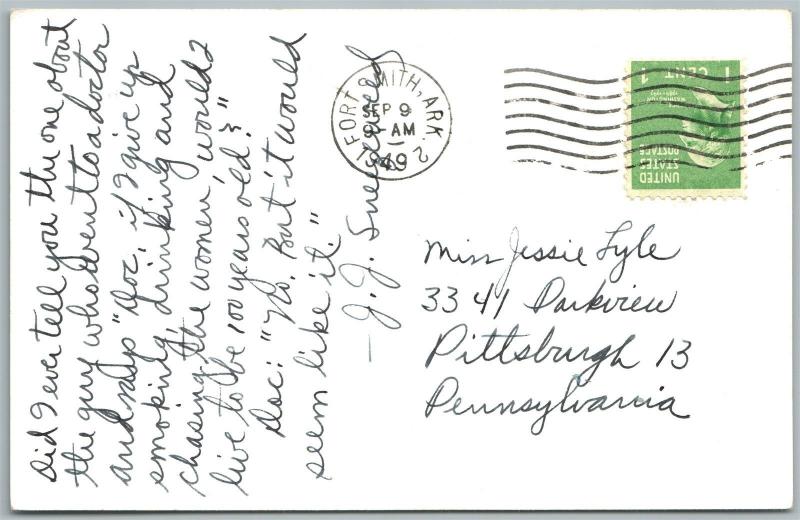 Did I ever tell you the one about
the guy who went to a doctor
and says "Doc, if I give up
smoking, drinking and
chasing the women, would I
live to be 100 years old?"
Doc: "No. But it would
seem like it."
— J. J.
FORT SMITH, ARK. 2
SEP 9
9 AM
49
UNITED
STATES
POSTAGE
WASHINGTON
1 CENT 1
Miss Jessie Lyle
3341 Parkview
Pittsburgh 13
Pennsylvania